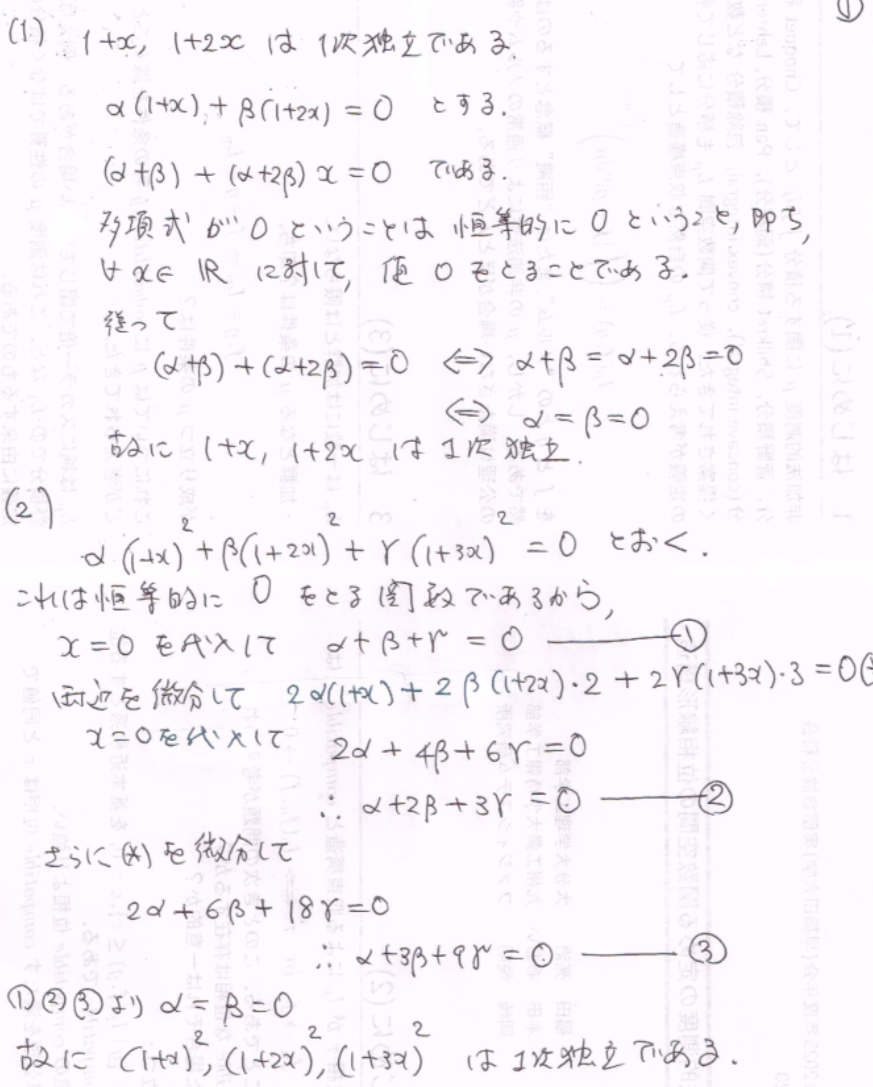 ①
(1) 1+x, 1+2x は 1次独立である.
α(1+x) + β(1+2x) = 0 とする.
(α+β) + (α+2β) x = 0 である.
多項式が 0 ということは 恒等的に 0 ということ, 即ち,
∀x∈ℝ に対して, 値 0 をとることである.
従って
(α+β) + (α+2β) = 0 ⇔ α+β = α+2β = 0
⇔ α = β = 0
故に 1+x, 1+2x は 1次独立.
(2)
α(1+x)² + β(1+2x)² + γ(1+3x)² = 0 とおく.
これは恒等的に 0 をとる関数であるから,
x=0 を代入して α+β+γ = 0 ――― ①
両辺を微分して 2α(1+x) + 2β(1+2x)・2 + 2γ(1+3x)・3 = 0
x=0を代入して 2α + 4β + 6γ = 0
∴ α+2β+3γ = 0 ――― ②
さらに (*) を微分して
2α + 6β + 18γ = 0
∴ α+3β+9γ = 0 ――― ③
①②③より α = β = 0
故に (1+x)², (1+2x)², (1+3x)² は 1次独立である.